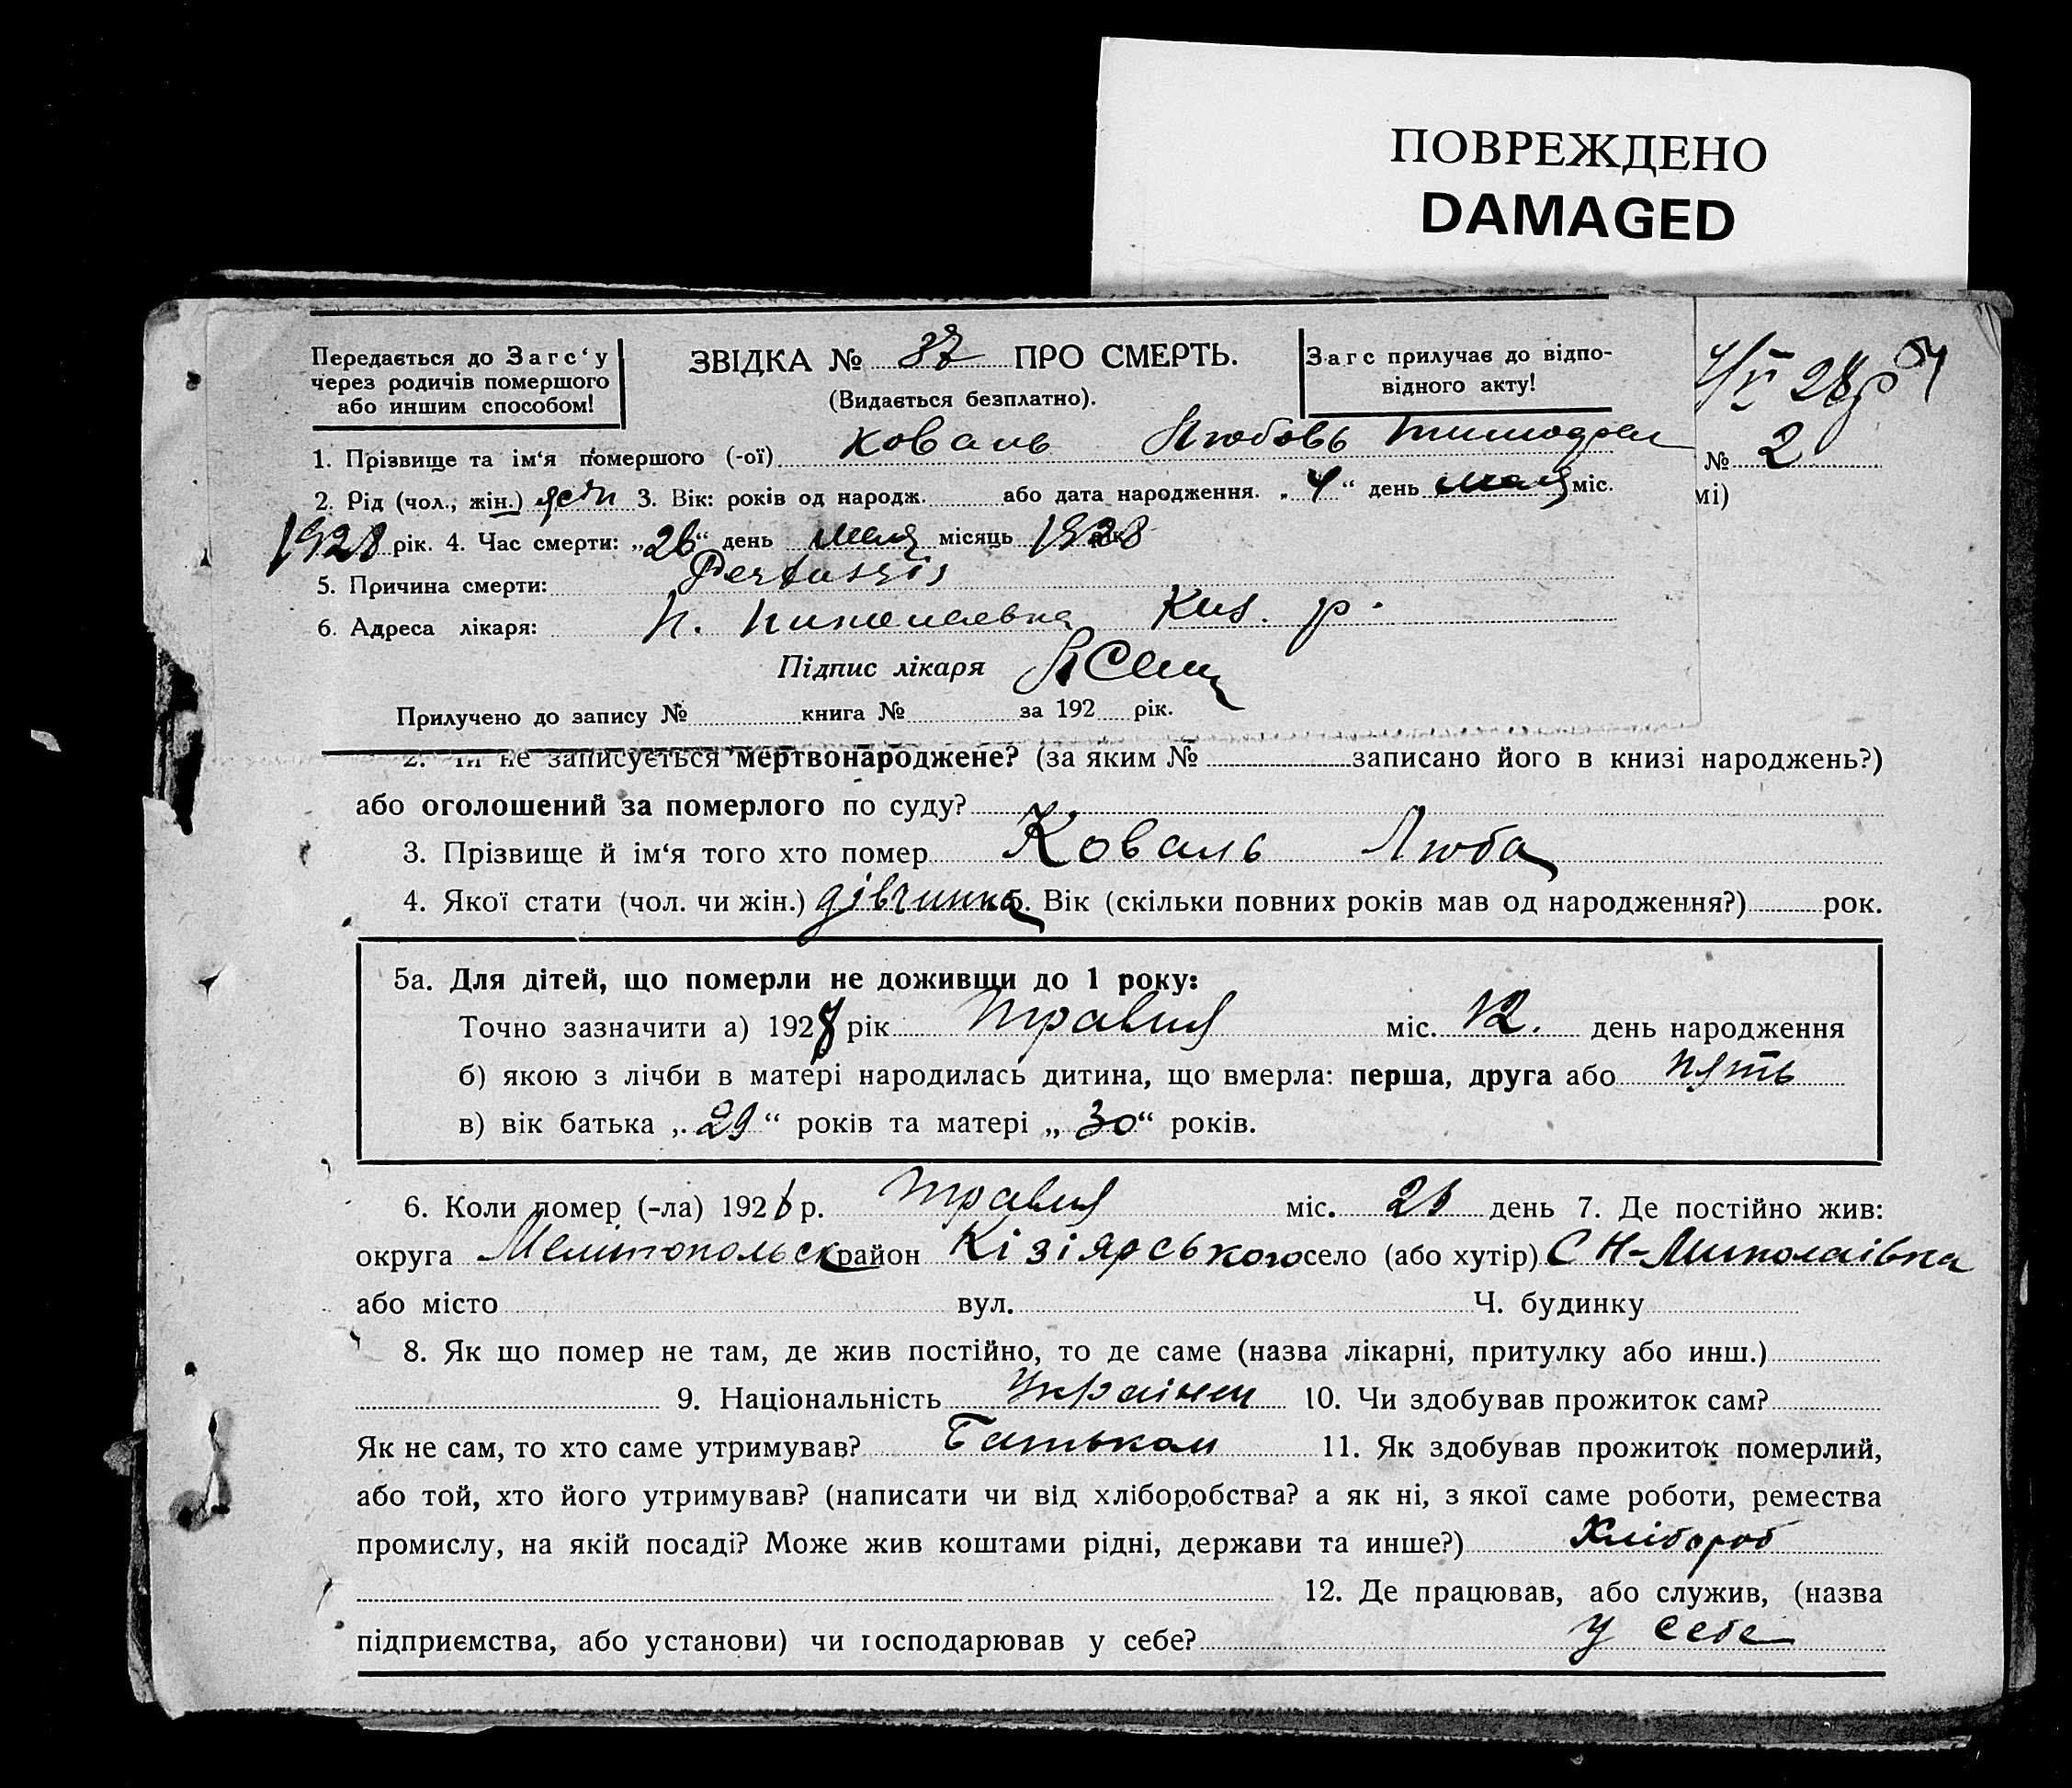 ПОВРЕЖДЕНО
DAMAGED
Передається до Загс‘у
через родичів помершого
або иншим способом!
ЗВІДКА № 37 ПРО СМЕРТЬ.
(Видається безплатно).
Загс прилучає до відпо-
відного акту!
1. Прізвище та ім‘я помершого (-ої) Коваль Любовь
№ 2
2. Рід (чол., жін.) жен 3. Вік: років од народж. або дата народження. „4“ день мая міс.
мі)
1928 рік. 4. Час смерти: „26“ день мая місяць 1928
5. Причина смерти: Pertussis
6. Адреса лікаря: Н. Николаевка Киз. р.
Підпис лікаря
Прилучено до запису № книга № за 192 рік.
не записується мертвонароджене? (за яким № записано його в книзі народжень?)
або оголошений за померлого по суду?
3. Прізвище й ім‘я того хто помер Коваль Люба
4. Якої стати (чол. чи жін.) дівчинка 5. Вік (скільки повних років мав од народження?) рок.
5а. Для дітей, що померли не доживши до 1 року:
Точно зазначити а) 192 рік травня міс. 12. день народження
б) якою з лічби в матері народилась дитина, що вмерла: перша, друга або пять
в) вік батька „29“ років та матері „30“ років.
6. Коли помер (-ла) 192 р. травня міс. день 7. Де постійно жив:
округа Мелітопольск район Кізіярського село (або хутір) С Н-Миколаівка
або місто вул. Ч. будинку
8. Як що помер не там, де жив постійно, то де саме (назва лікарні, притулку або инш.)
9. Національність Українец 10. Чи здобував прожиток сам?
Як не сам, то хто саме утримував? Батьком 11. Як здобував прожиток померлий,
або той, хто його утримував? (написати чи від хліборобства? а як ні, з якої саме роботи, ремества
промислу, на якій посаді? Може жив коштами рідні, держави та инше?) Хлібороб
12. Де працював, або служив, (назва
підприємства, або установи) чи господарював у себе? у себе